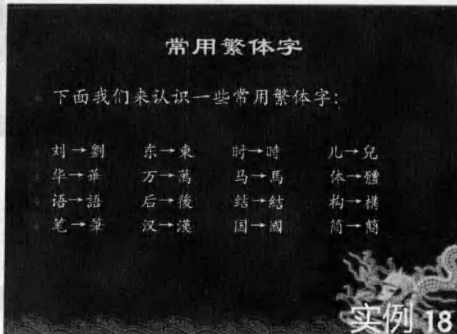 常用繁体字
下面我们来认识一些常用繁体字:
刘→劉 东→東 时→時 儿→兒
华→華 万→萬 马→馬 体→體
语→語 后→後 结→結 构→構
笔→筆 汉→漢 国→國 简→簡
实例 18